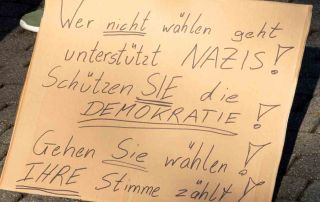 Wer nicht wählen geht
unterstützt NAZIS!
Schützen SIE die
DEMOKRATIE!
Gehen Sie wählen!
IHRE Stimme zählt!